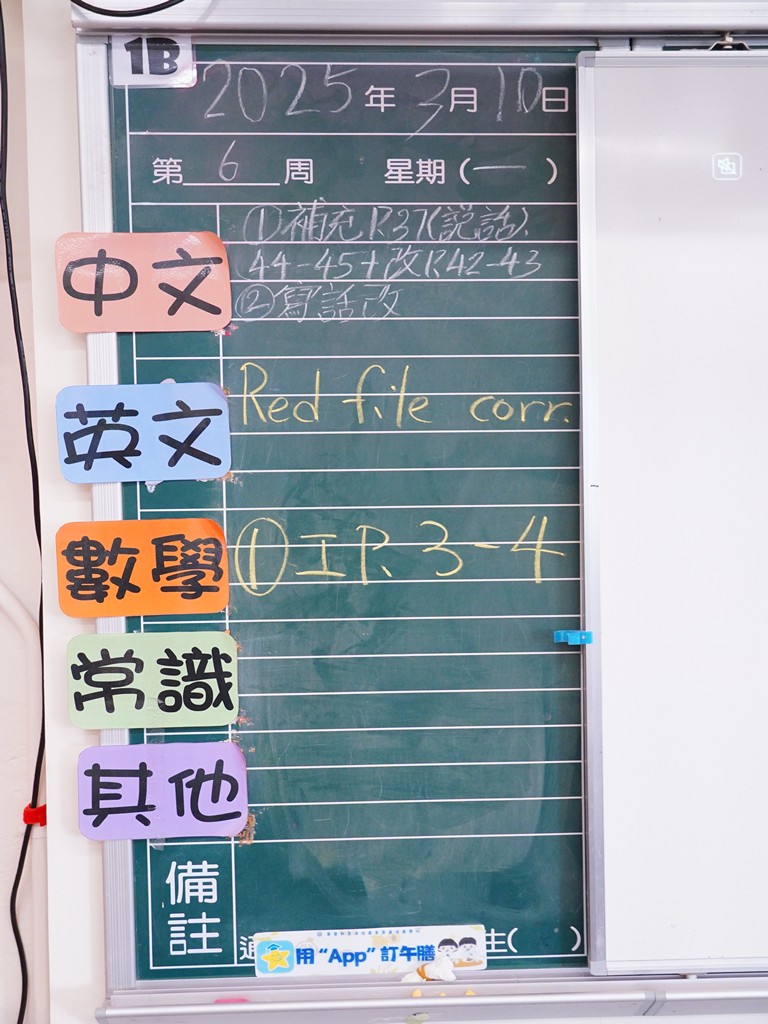 1B
2025年3月10日
第6周 星期(一)
中文
①補充P.37(説話)、
44-45+改P.42-43
②寫話改
英文
Red file corr.
數學
①工P.3-4
常識
其他
備註
用“App”訂午膳
生( )